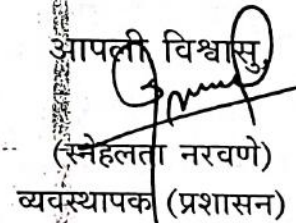 आपली विश्वासु,
(स्नेहलता नरवणे)
व्यवस्थापक (प्रशासन)